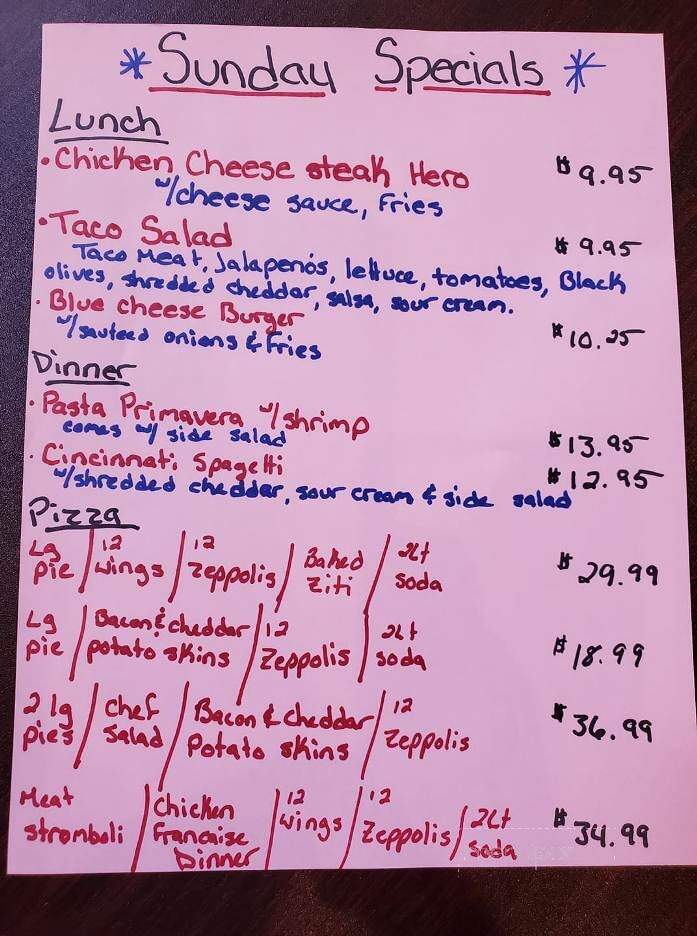 * Sunday Specials *
Lunch
• Chicken Cheese steak Hero $9.95
w/cheese sauce, Fries
• Taco Salad $9.95
Taco Meat, Jalapenós, lettuce, tomatoes, Black
olives, shredded cheddar, salsa, sour cream.
• Blue cheese Burger $10.25
w/sauteed onions & Fries
Dinner
• Pasta Primavera w/shrimp $13.95
comes w/ side salad
• Cincinnati Spagetti $12.95
w/shredded cheddar, sour cream & side salad
Pizza
Lg / 12 / 12 / Baked / 2Lt
pie / wings / Zeppolis / Ziti / soda $29.99
Lg / Bacon & cheddar / 12 / 2Lt
pie / potato skins / Zeppolis / soda $18.99
2 lg / chef / Bacon & cheddar / 12
pies / Salad / Potato skins / Zeppolis $36.99
Meat / Chicken / 12 / 12 / 2Lt
stromboli / Francaise / wings / Zeppolis / soda $34.99
Dinner